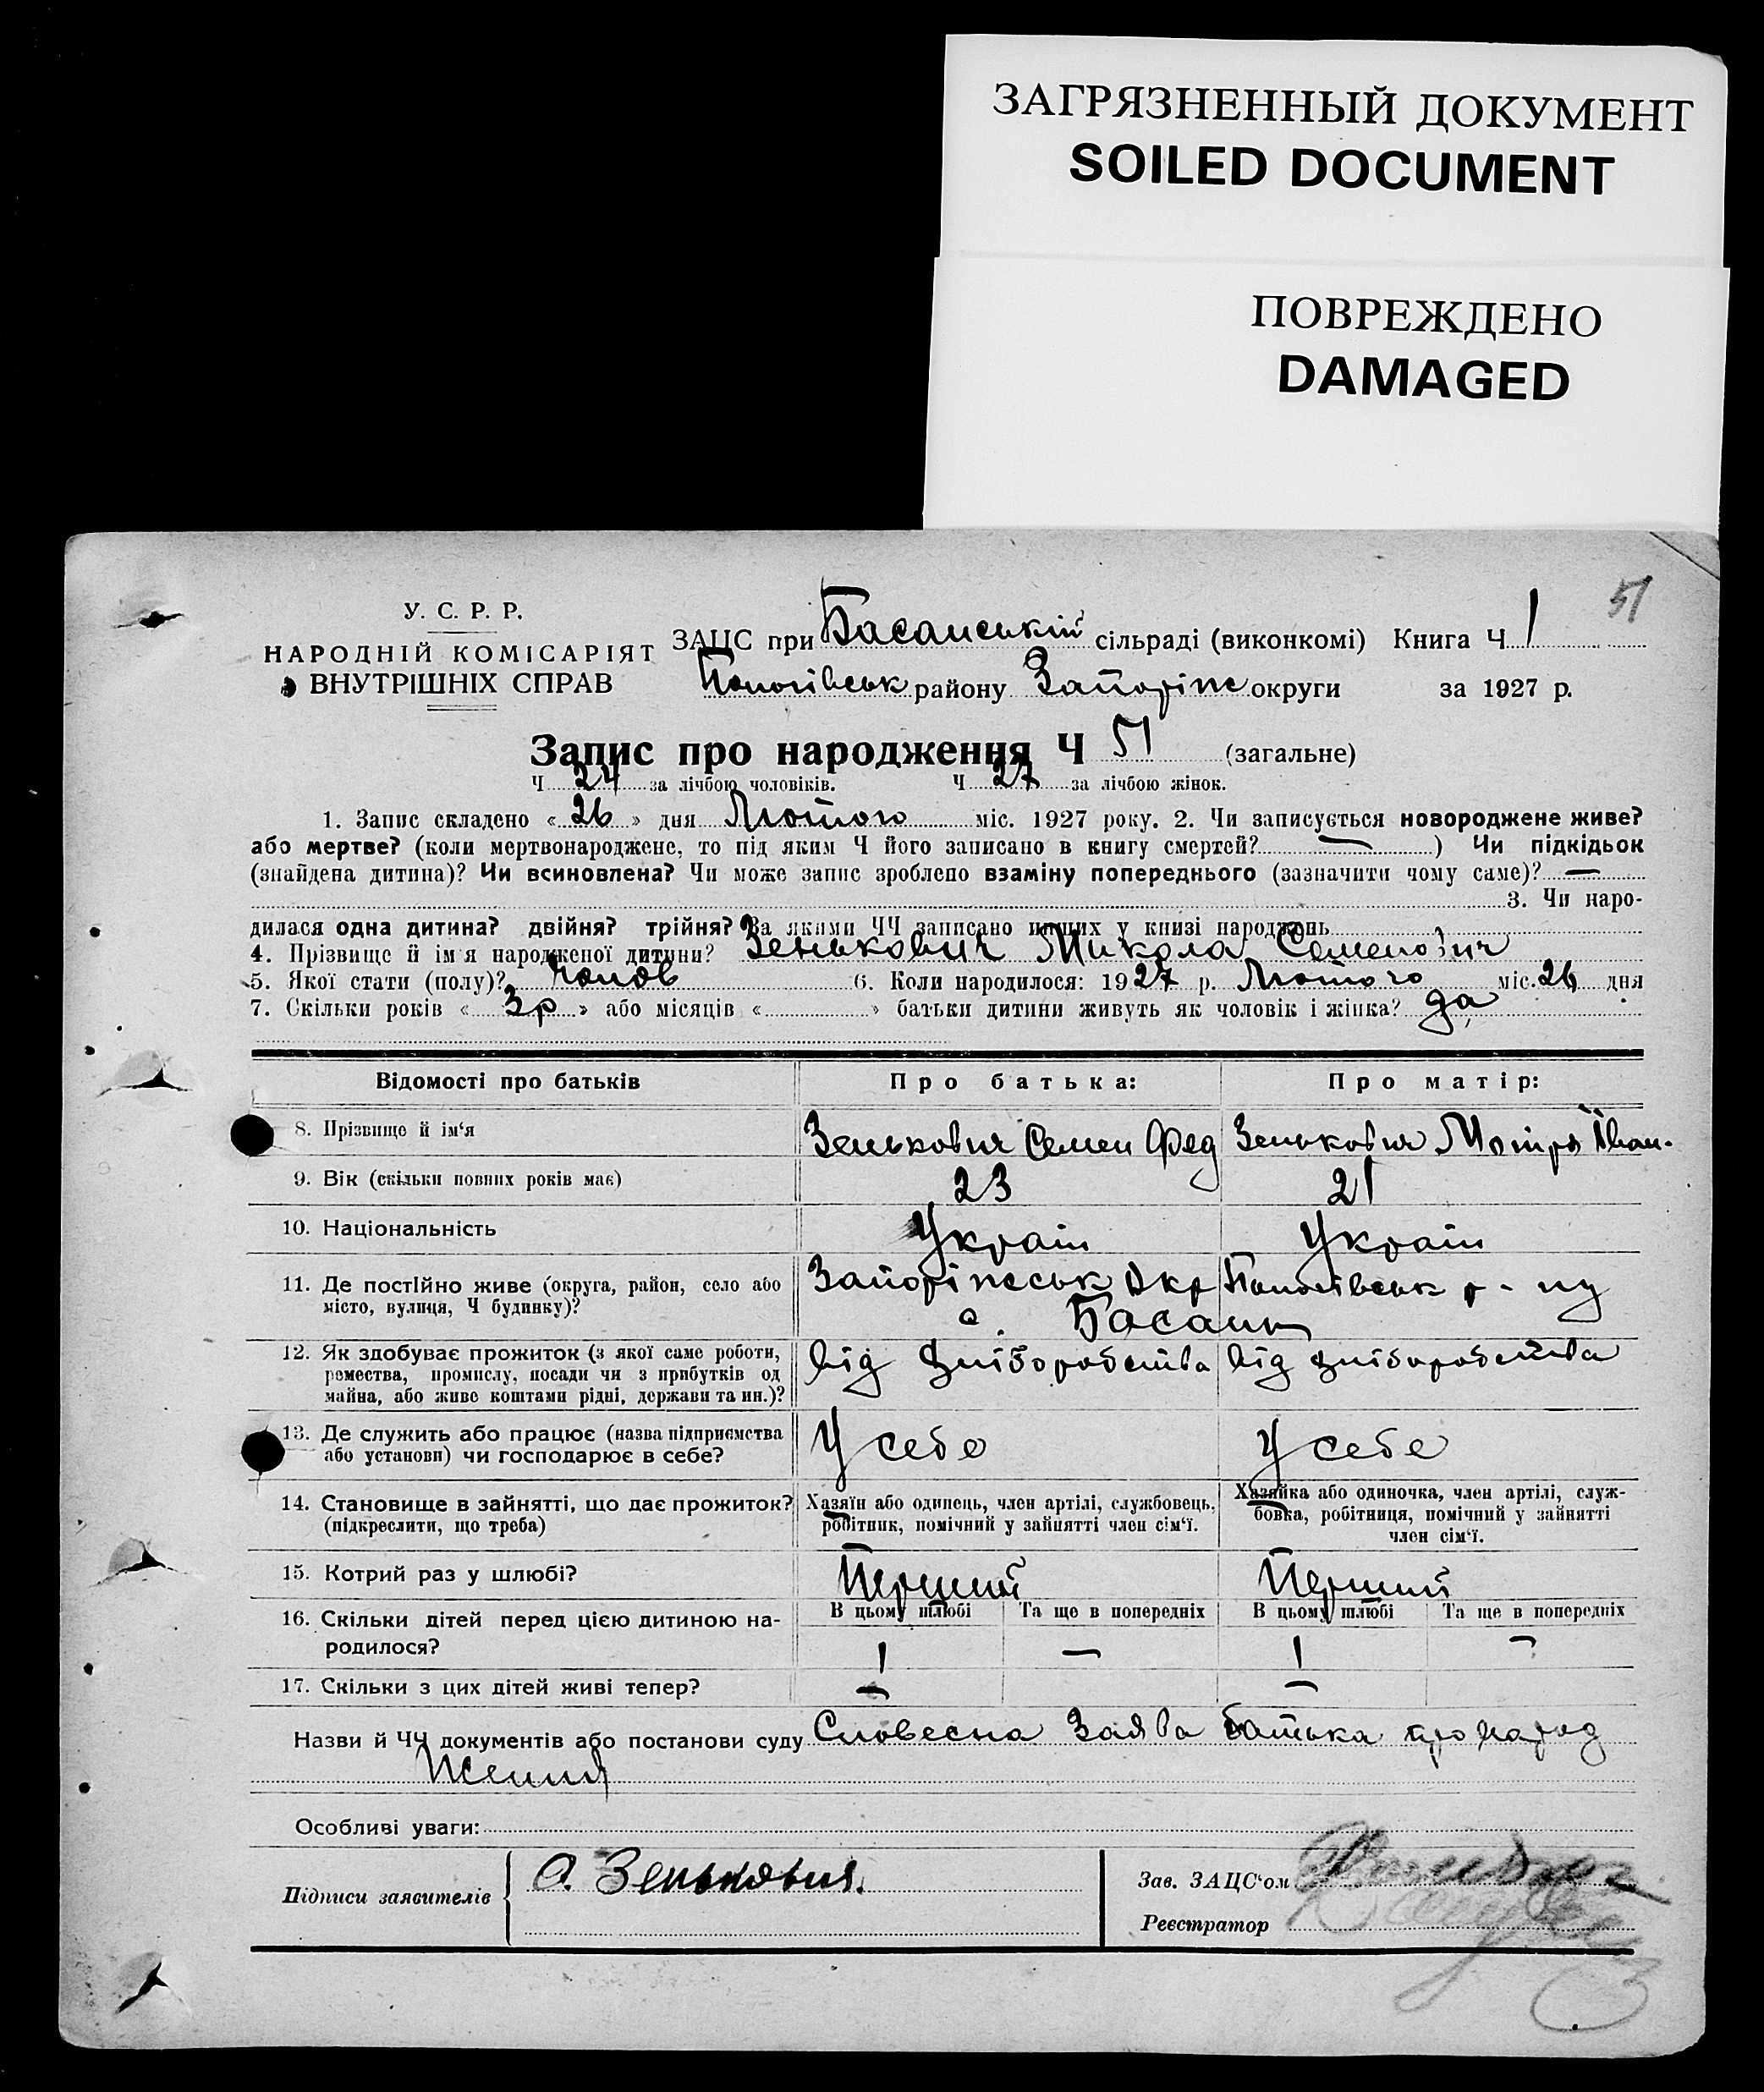 ЗАГРЯЗНЕННЫЙ ДОКУМЕНТ
SOILED DOCUMENT
ПОВРЕЖДЕНО
DAMAGED
51
У. С. Р. Р.
НАРОДНІЙ КОМІСАРІЯТ
ВНУТРІШНІХ СПРАВ
ЗАЦС при Басанській сільраді (виконкомі) Книга Ч 1
Пологівськ району Запоріж округи за 1927 р.
Запис про народження Ч 51 (загальне)
Ч 24 за лічбою чоловіків. Ч 27 за лічбою жінок.
1. Запис складено « 26 » дня Лютого міс. 1927 року. 2. Чи записується новороджене живе?
або мертве? (коли мертвонароджене, то під яким Ч його записано в книгу смертей? — ) Чи підкідьок
(знайдена дитина)? Чи всиновлена? Чи може запис зроблено взаміну попереднього (зазначити чому саме)? —
3. Чи наро-
дилася одна дитина? двійня? трійня? За якими ЧЧ записано инших у книзі народжень
4. Прізвище й ім'я народженої дитини? Зенькович Микола Семенович
5. Якої стати (полу)? чолов 6. Коли народилося: 1927 р. Лютого міс. 26 дня
7. Скільки років « 3р » або місяців « » батьки дитини живуть як чоловік і жінка? да
Відомості про батьків Про батька: Про матір:
8. Прізвище й ім'я Зенькович Семен Фед Зенькович Мотря Іван.
9. Вік (скільки повних років має) 23 21
10. Національність Україн Україн
11. Де постійно живе (округа, район, село або Запоріжськ Окр Пологівськ р-ну
місто, вулиця, Ч будинку)? с. Басань
12. Як здобуває прожиток (з якої саме роботи, від хліборобства від хліборобства
ремества, промислу, посади чи з прибутків од
майна, або живе коштами рідні, держави та ин.)?
13. Де служить або працює (назва підприємства У себе У себе
або установи) чи господарює в себе?
14. Становище в зайнятті, що дає прожиток? Хазяїн або одинець, член артілі, службовець, Хазяйка або одиночка, член артілі, служ-
(підкреслити, що треба) робітник, помічний у зайнятті член сім'ї. бовка, робітниця, помічний у зайнятті
член сім'ї.
15. Котрий раз у шлюбі? Перший Перший
16. Скільки дітей перед цією дитиною на- В цьому шлюбі Та ще в попередніх В цьому шлюбі Та ще в попередніх
родилося? 1 — 1 —
17. Скільки з цих дітей живі тепер? — —
Назви й ЧЧ документів або постанови суду Словесна заява батька про народ
ження
Особливі уваги:
Підписи заявителів С. Зенькович.
Зав. ЗАЦС'ом
Реєстратор